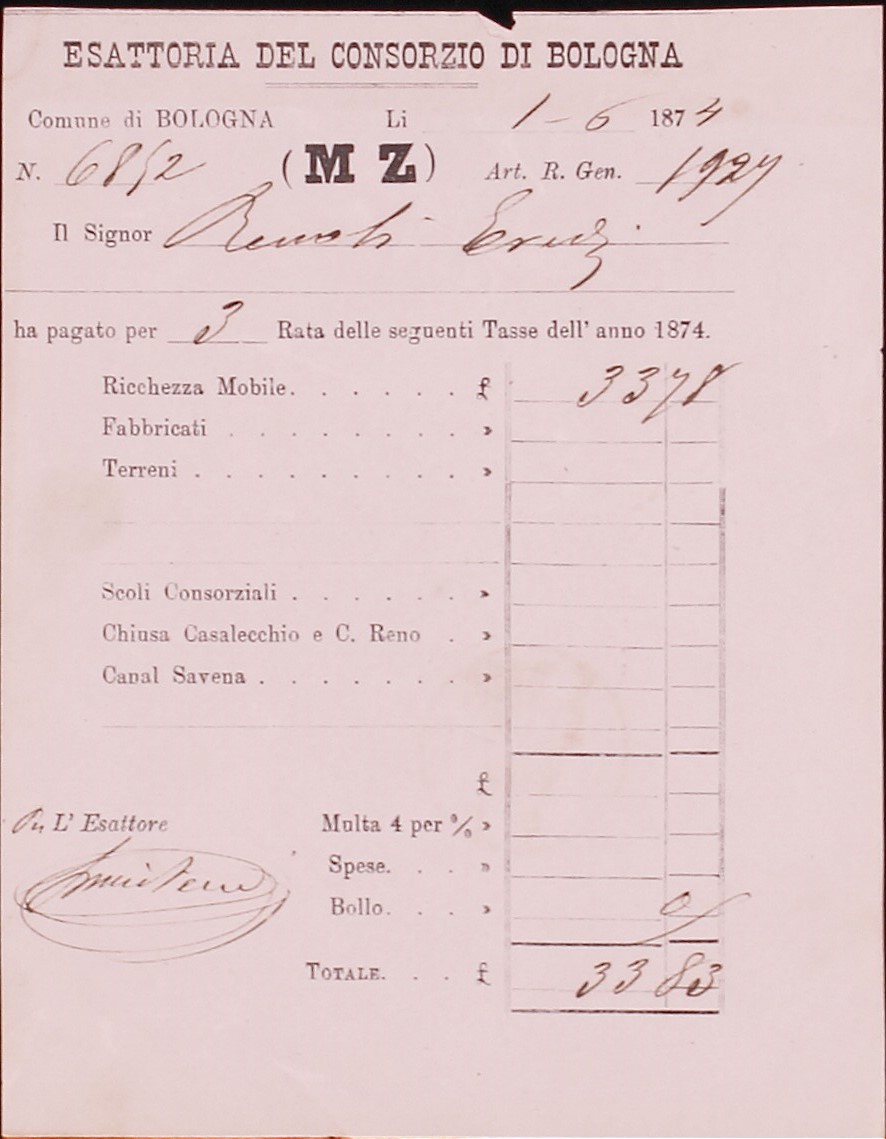 ESATTORIA DEL CONSORZIO DI BOLOGNA
Comune di BOLOGNA Li 1 - 6 1874
N. 6852 (M Z) Art. R. Gen. 1927
Il Signor Eredi
ha pagato per 3 Rata delle seguenti Tasse dell' anno 1874.
Ricchezza Mobile. . . . . . £ 33 78
Fabbricati . . . . . . . . . »
Terreni . . . . . . . . . . »
Scoli Consorziali . . . . . . »
Chiusa Casalecchio e C. Reno . »
Canal Savena . . . . . . . »
£
Per L' Esattore Multa 4 per % »
Spese. . . »
Bollo. . . » 05
TOTALE. . . £ 33 83